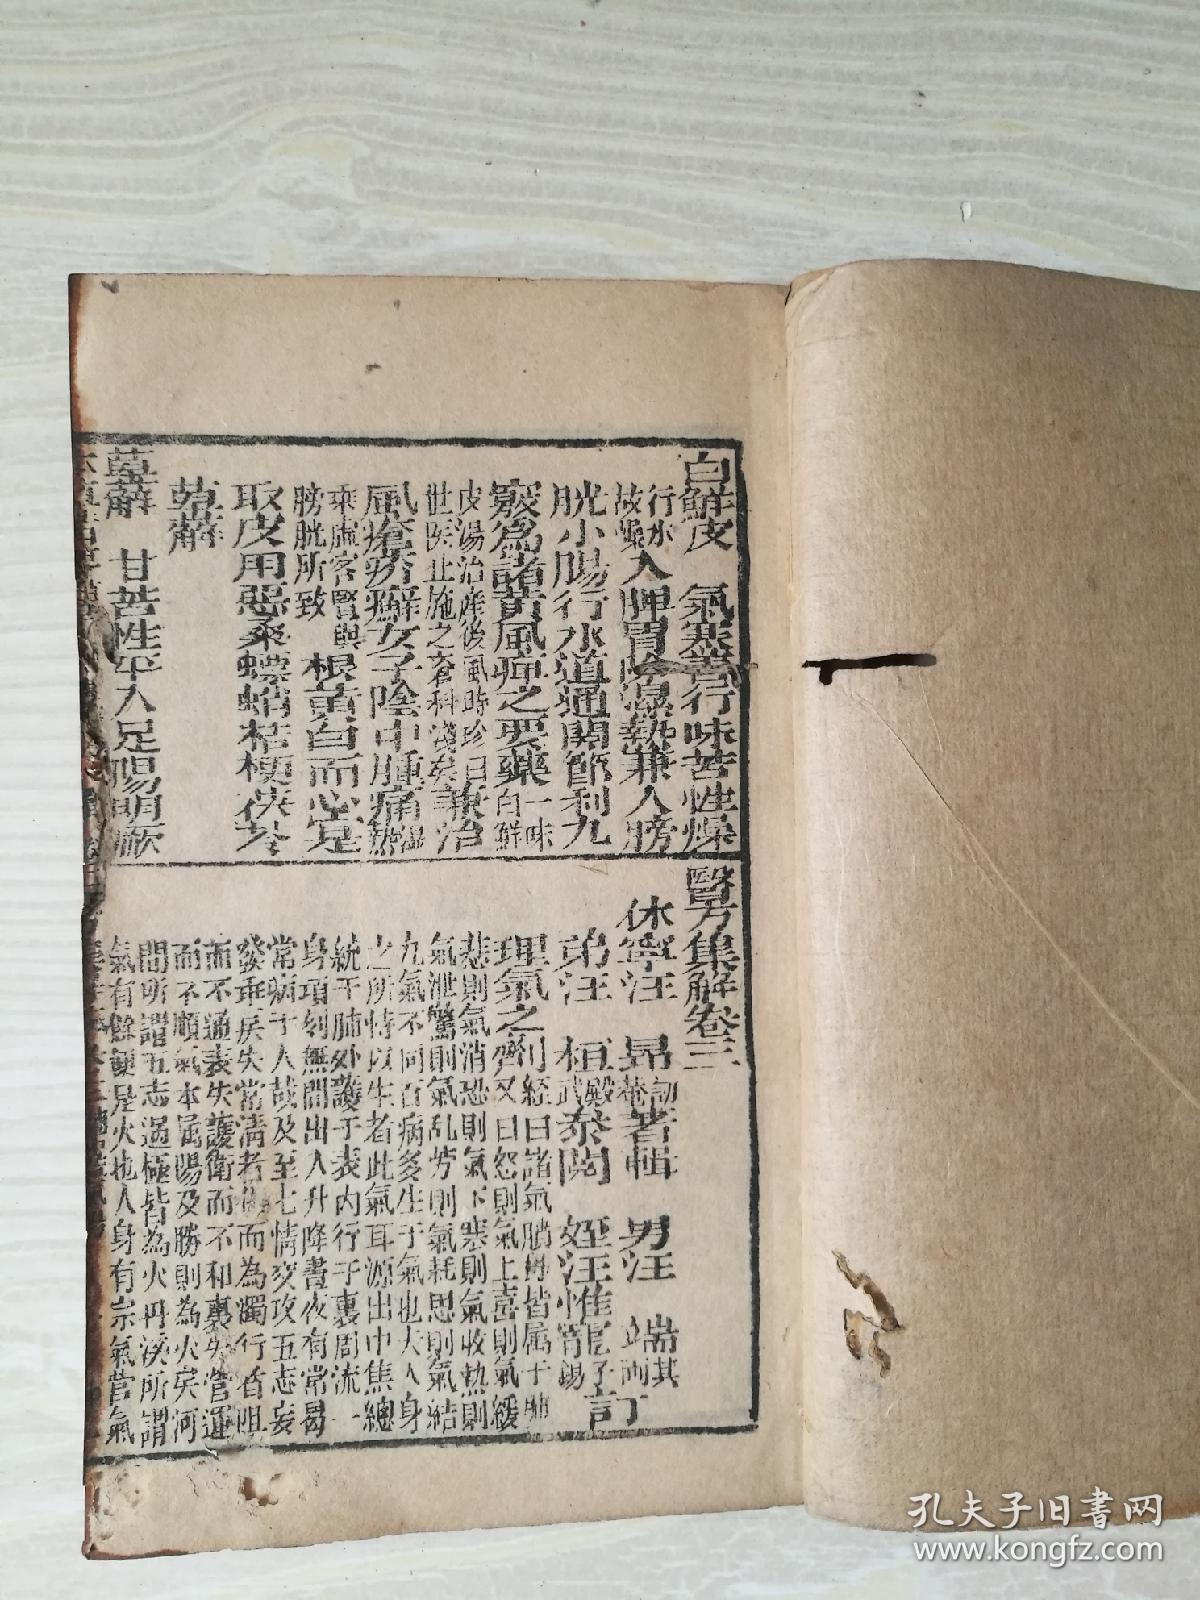 白鮮皮　氣寒善行味苦性燥
行水故燥入脾胃除濕熱兼入膀
胱小腸行水道通關節利九
竅為諸黃風痺之要藥一味白鮮
皮湯治產後風時珍曰世醫止施之瘡科淺矣兼治
風瘡疥癬女子陰中腫痛濕熱
乘虛客腎與膀胱所致根黃白而心實
取皮用惡桑螵蛸桔梗茯苓
萆薢
萆薢　甘苦性平入足陽明厥
醫方集解卷三
休寧汪　昂訒菴著輯　男汪　端其兩訂
弟汪　桓殿武叅閱　姪汪惟寵子錫訂
理氣之劑經曰諸氣膹鬱皆属于肺又曰怒則氣上喜則氣緩
悲則氣消恐則氣下寒則氣收熱則
氣泄驚則氣乱勞則氣耗思則氣結
九氣不同百病多生于氣也夫人身
之所恃以生者此氣耳源出中焦總
統于肺外護于表內行于裏周流一
身項刻無間出入升降晝夜有常曷
常病于人哉及至七情交攻五志妄
發乖戾失常清者化而為濁行者阻
而不通表失護衛而不和裏失營運
而不順氣本属陽及勝則為火矣河
間所謂五志過極皆為火丹溪所謂
氣有餘便是火也人身有宗氣營氣
孔夫子旧书网
www.kongfz.com